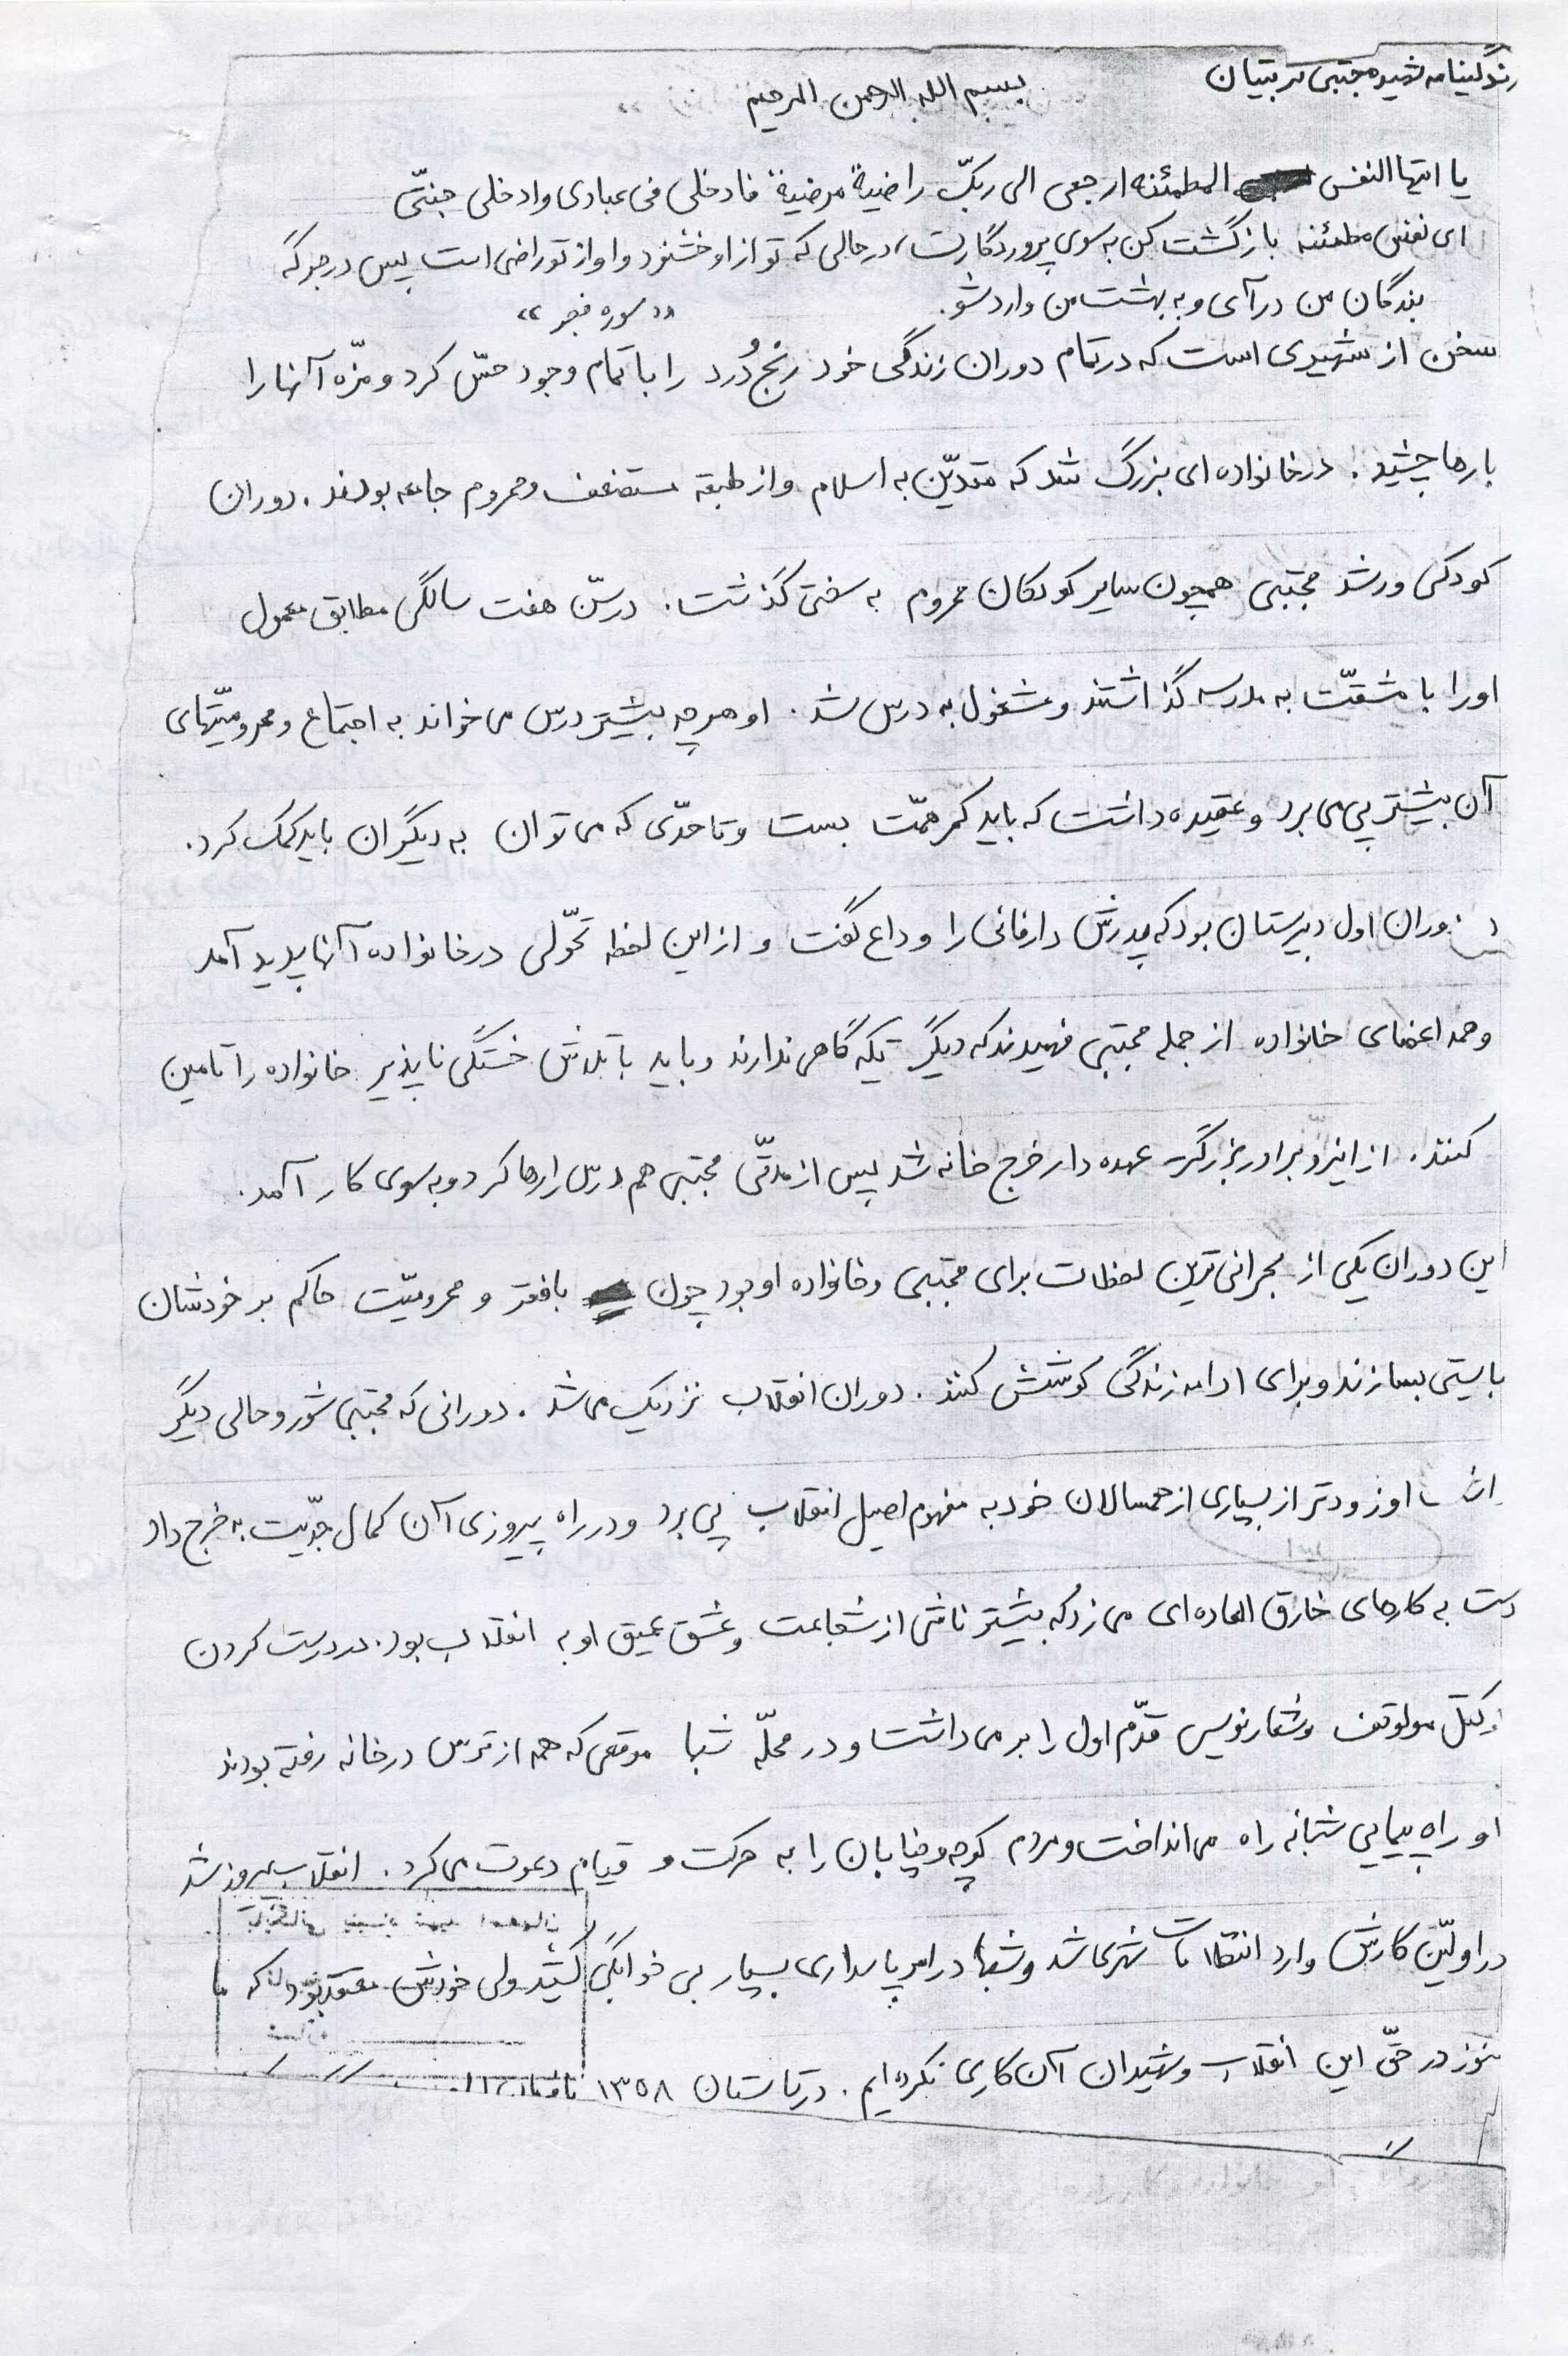 زندگینامه شهید مجتبی تربتیان
بسم الله الرحمن الرحیم
یا ایتها النفس المطمئنه ارجعی الی ربکّ راضیة مرضیة فادخلی فی عبادی وادخلی جنّتی
ای نفس مطمئنه بازگشت کن به سوی پروردگارت، درحالی که تو از او خشنود و او از تو راضی است پس در جرگه
بندگان من درآی و به بهشت من وارد شو. «سوره فجر»
سخن از شهیدی است که در تمام دوران زندگی خود رنج و درد را با تمام وجود حسّ کرد و مزّه آنها را
بارها چشید. در خانواده ای بزرگ شد که متدیّن به اسلام و از طبقه مستضعف و محروم جامعه بودند. دوران
کودکی و رشد مجتبی همچون سایر کودکان محروم به سختی گذشت. در سنّ هفت سالگی مطابق معمول
او را با مشقّت به مدرسه گذاشتند و مشغول به درس شد. او هرچه بیشتر درس می خواند به اجتماع و محرومیّتهای
آن بیشتر پی می برد و عقیده داشت که باید کمر همّت بست و تا حدّی که می توان به دیگران باید کمک کرد.
دوران اول دبیرستان بود که پدرش دارفانی را وداع گفت و از این لحظه تحّولی در خانواده آنها پدید آمد
و همه اعضای خانواده از جمله مجتبی فهمیدند که دیگر تکیه گاهی ندارند و باید با تلاش خستگی ناپذیر خانواده را تامین
کنند. از اینرو برادر بزرگتر عهده دار خرج خانه شد پس از مدتّی مجتبی هم درس را رها کرد و به سوی کار آمد.
این دوران یکی از بحرانی ترین لحظات برای مجتبی و خانواده او بود چون با فقر و محرومیّت حاکم بر خودشان
بایستی بسازند و برای ادامه زندگی کوشش کنند. دوران انقلاب نزدیک می شد. دورانی که مجتبی شور و حالی دیگر
او زودتر از بسیاری از همسالان خود به مفهوم اصیل انقلاب پی برد و در راه پیروزی آن کمال جدّیت به خرج داد
دست به کارهای خارق العاده ای می زد که بیشتر ناشی از شجاعت و عشق عمیق او به انقلاب بود. در درست کردن
کوکتل مولوتف و شعارنویسی قدّم اول را بر می داشت و در محلّه شبا موقعی که همه از ترس در خانه رفته بودند
او راه پیمایی شبانه راه می انداخت و مردم کوچه و خیابان را به حرکت و قیام دعوت می کرد. انقلاب پیروز شد
در اولّین کارش وارد انتظامات شهری شد و شبها در امر پاسداری بسیار بی خوابگی کشید ولی خودش معتقد بود که ما
هنوز در حقّ این انقلاب و شهیدان آن کاری نکرده ایم. در تابستان ۱۳۵۸